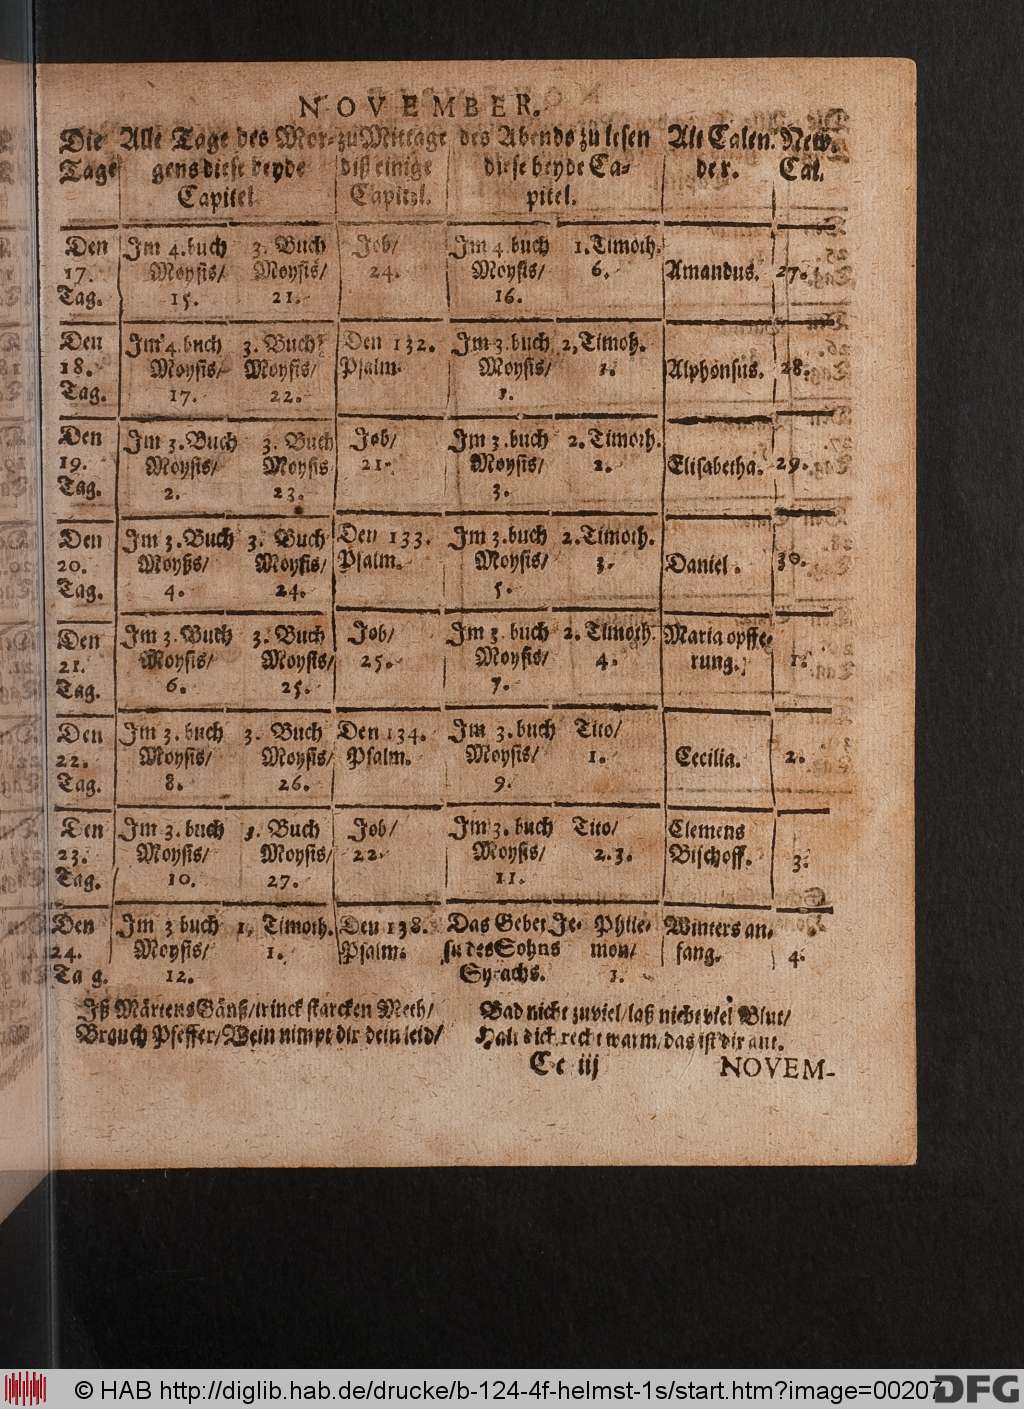 NOVEMBER.
Die Alle Tage des Mor- zu Mittage des Abends zu lesen Alt Calen- New.
Tage gens diese beyde diß einige diese beyde Ca- der. Cal.
Capitel Capitel. pitel.
Den Im 4. buch 3. Buch Job/ Im 4. buch 1. Timoth.
17. Moysis/ Moysis/ 24. Moysis/ 6. Amandus. 27.
Tag. 15. 21. 16.
Den Im 4. buch 3. Buch Den 132. Im 3. buch 2, Timoh.
18. Moysis/ Moysis/ Psalm. Moysis/ 1. Alphonsus. 28.
Tag. 17. 22. 1.
Den Im 3. Buch 3. Buch Job/ Im 3. buch 2. Timoth.
19. Moysis/ Moysis 21. Moysis/ 2. Elisabetha. 29.
Tag. 2. 23. 3.
Den Im 3. Buch 3. Buch Den 133. Im 3. buch 2. Timoth.
20. Moyßs/ Moysis/ Psalm. Moysis/ 3. Daniel. 30.
Tag. 4. 24. 5.
Den Im 3. Buch 3. Buch Job/ Im 3. buch 2. Timoth. Maria opffe-
21. Moysis/ Moysis/ 25. Moysis/ 4. rung. 1.
Tag. 6. 25. 7.
Den Im 3. buch 3. Buch Den 134. Im 3. buch Tito/
22. Moysis/ Moysis/ Psalm. Moysis/ 1. Cecilia. 2.
Tag. 8. 26. 9.
Den Im 3. buch 3. Buch Job/ Im 3. buch Tito/ Clemens
23. Moysis/ Moysis/ 22. Moysis/ 2. 3. Bischoff. 3.
Tag. 10. 27. 11.
Den Im 3 buch 1. Timoth. Den 138. Das Gebet Je- Phile- Winters an-
24. Moysis/ 1. Psalm. su des Sohns mon/ fang. 4.
Tag. 12. Syrachs. 1.
Iß Märtens Gänß/trinck starcken Meth/ Bad nicht zuviel/laß nicht viel Blut/
Brauch Pfeffer/Wein nimpt dir dein leid/ Halt dich recht warm/das ist dir gut.
Cc iij NOVEM-
© HAB http://diglib.hab.de/drucke/b-124-4f-helmst-1s/start.htm?image=00207
DFG